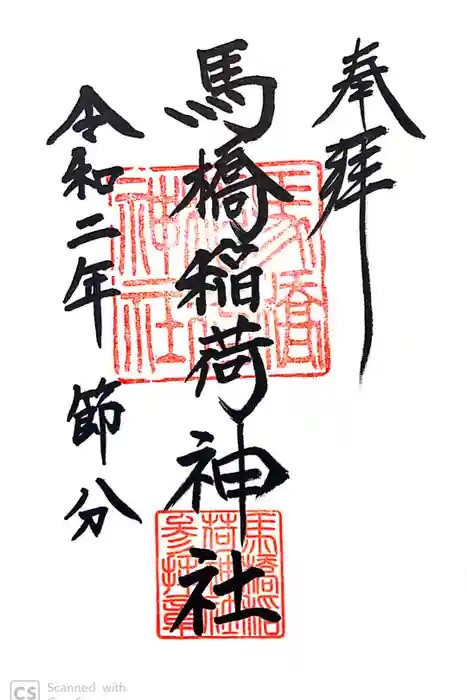 奉拝
馬橋稲荷神社
令和二年 節分
馬橋
神社
馬橋稲
荷神社
参拝章
CS Scanned with